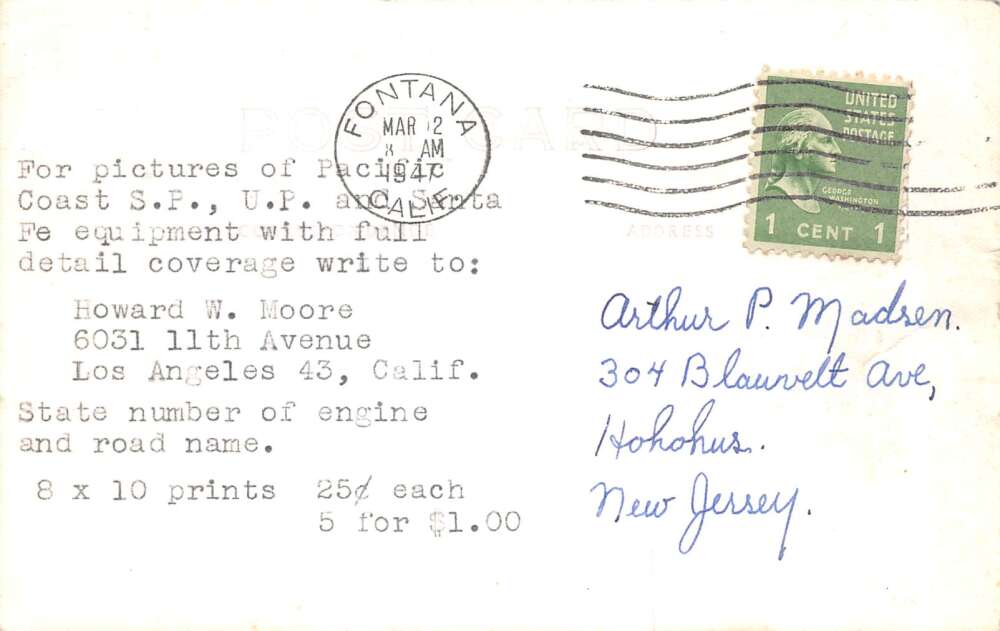 POST CARD
FONTANA
MAR 2
AM
1947
CALIF.
UNITED
STATES
POSTAGE
GEORGE
WASHINGTON
1 CENT 1
ADDRESS
For pictures of Pacific
Coast S.P., U.P. and Santa
Fe equipment with full
detail coverage write to:
Howard W. Moore
6031 11th Avenue
Los Angeles 43, Calif.
State number of engine
and road name.
8 x 10 prints 25¢ each
5 for $1.00
Arthur P. Madsen.
304 Blauvelt Ave,
Hohohus.
New Jersey.